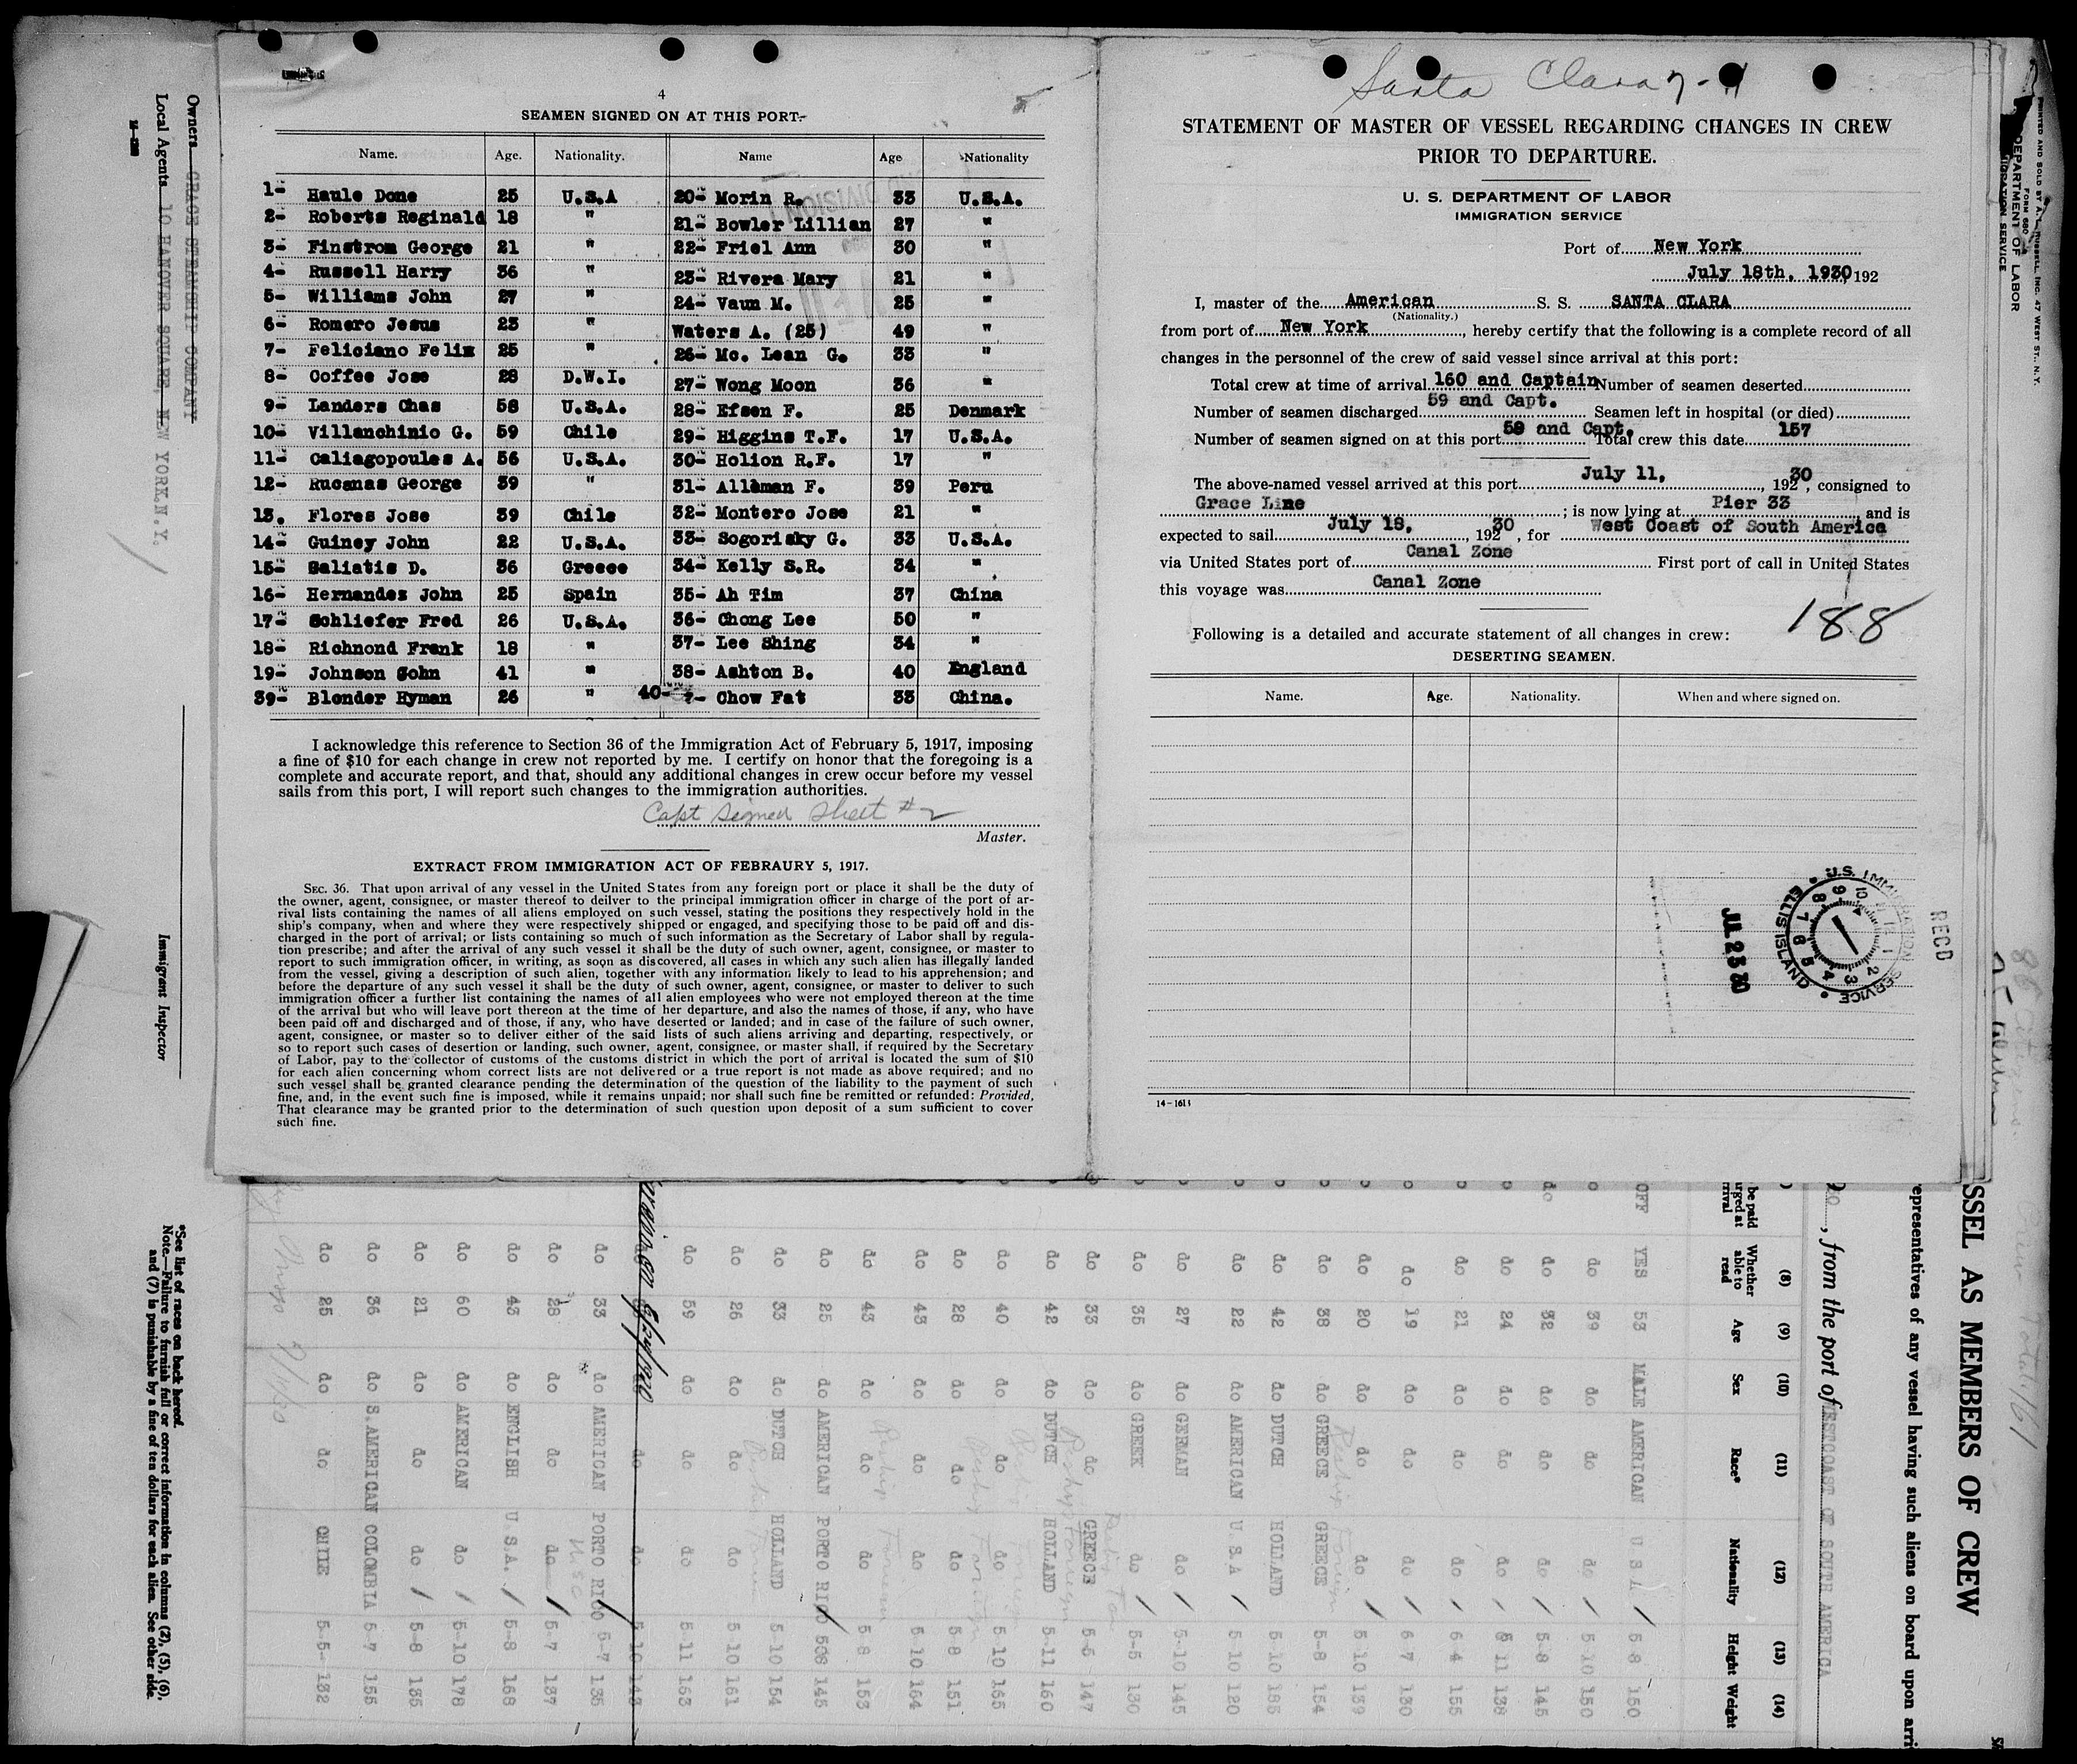 4
SEAMEN SIGNED ON AT THIS PORT.
Name. Age. Nationality. Name Age Nationality
1- Haule Done 25 U.S.A 20- Morin R. 33 U.S.A.
2- Roberts Reginald 18 " 21- Bowler Lillian 27 "
3- Finstrom George 21 " 22- Friel Ann 30 "
4- Russell Harry 36 " 23- Rivera Mary 21 "
5- Williams John 27 " 24- Vaum M. 25 "
6- Romero Jesus 23 " Waters A. (25) 49 "
7- Feliciano Felix 25 " 26- Mc. Lean G. 33 "
8- Coffee Jose 28 D.W.I. 27- Wong Moon 36 "
9- Landers Chas 58 U.S.A. 28- Efsen F. 25 Denmark
10- Villanchinio G. 59 Chile 29- Higgins T.F. 17 U.S.A.
11- Caliagopoules A. 56 U.S.A. 30- Holion R.F. 17 "
12- Rucanas George 39 " 31- Allaman F. 39 Peru
13. Flores Jose 39 Chile 32- Montero Jose 21 "
14- Guiney John 22 U.S.A. 33- Sogorisky G. 33 U.S.A.
15- Galiatis D. 36 Greece 34- Kelly S.R. 34 "
16- Hernandes John 25 Spain 35- Ah Tim 37 China
17- Schliefer Fred 26 U.S.A. 36- Chong Lee 50 "
18- Richnond Frank 18 " 37- Lee Shing 34 "
19- Johnson John 41 " 38- Ashton B. 40 England
39- Blender Hyman 26 " 40- Chow Fat 33 China.
I acknowledge this reference to Section 36 of the Immigration Act of February 5, 1917, imposing
a fine of $10 for each change in crew not reported by me. I certify on honor that the foregoing is a
complete and accurate report, and that, should any additional changes in crew occur before my vessel
sails from this port, I will report such changes to the immigration authorities.
Capt Signed Sheet #2
Master.
EXTRACT FROM IMMIGRATION ACT OF FEBRAURY 5, 1917.
SEC. 36. That upon arrival of any vessel in the United States from any foreign port or place it shall be the duty of
the owner, agent, consignee, or master thereof to deilver to the principal immigration officer in charge of the port of ar-
rival lists containing the names of all aliens employed on such vessel, stating the positions they respectively hold in the
ship's company, when and where they were respectively shipped or engaged, and specifying those to be paid off and dis-
charged in the port of arrival; or lists containing so much of such information as the Secretary of Labor shall by regula-
tion prescribe; and after the arrival of any such vessel it shall be the duty of such owner, agent, consignee, or master to
report to such immigration officer, in writing, as soon as discovered, all cases in which any such alien has illegally landed
from the vessel, giving a description of such alien, together with any information likely to lead to his apprehension; and
before the departure of any such vessel it shall be the duty of such owner, agent, consignee, or master to deliver to such
immigration officer a further list containing the names of all alien employees who were not employed thereon at the time
of the arrival but who will leave port thereon at the time of her departure, and also the names of those, if any, who have
been paid off and discharged and of those, if any, who have deserted or landed; and in case of the failure of such owner,
agent, consignee, or master so to deliver either of the said lists of such aliens arriving and departing, respectively, or
so to report such cases of desertion or landing, such owner, agent, consignee, or master shall, if required by the Secretary
of Labor, pay to the collector of customs of the customs district in which the port of arrival is located the sum of $10
for each alien concerning whom correct lists are not delivered or a true report is not made as above required; and no
such vessel shall be granted clearance pending the determination of the question of the liability to the payment of such
fine, and, in the event such fine is imposed, while it remains unpaid; nor shall such fine be remitted or refunded: Provided,
That clearance may be granted prior to the determination of such question upon deposit of a sum sufficient to cover
such fine.
Santa Clara
STATEMENT OF MASTER OF VESSEL REGARDING CHANGES IN CREW
PRIOR TO DEPARTURE.
U. S. DEPARTMENT OF LABOR
IMMIGRATION SERVICE
Port of New York
July 18th, 1930, 192
I, master of the American S. S. SANTA CLARA
(Nationality.)
from port of New York, hereby certify that the following is a complete record of all
changes in the personnel of the crew of said vessel since arrival at this port:
Total crew at time of arrival 160 and Captain Number of seamen deserted
Number of seamen discharged 59 and Capt. Seamen left in hospital (or died)
Number of seamen signed on at this port 58 and Capt. Total crew this date 157
The above-named vessel arrived at this port July 11, 192 30, consigned to
Grace Line; is now lying at Pier 33, and is
expected to sail July 18, 192 30, for West Coast of South America
via United States port of Canal Zone First port of call in United States
this voyage was Canal Zone
188
Following is a detailed and accurate statement of all changes in crew:
DESERTING SEAMEN.
Name. Age. Nationality. When and where signed on.
U.S. IMMIGRATION SERVICE ELLIS ISLAND
JUL 23 30
RECD
14-1611
Owners GRACE STEAMSHIP COMPANY
Local Agents 10 HANOVER SQUARE, NEW YORK.N.Y.
Immigrant Inspector
*See list of races on back hereof.
Note.—Failure to furnish full or correct information in columns (2), (5), (6),
and (7) is punishable by a fine of ten dollars for each alien. See other side.
SSEL AS MEMBERS OF CREW
epresentatives of any vessel having such aliens on board upon arri
, from the port of WESTCOAST OF SOUTH AMERICA
(8) (9) (10) (11) (12) (13) (14)
Whether able to read Age Sex Race* Nationality Height Weight
OFF YES 53 MALE AMERICAN U S A 5-8 150
do 39 do do do 5 10 150
do do 32 do do do 5-8 145
do 24 do do do 5 11 138
do 21 do do do 6-4 155
do 19 do do do 6 7 130
do 20 do do do 5 10 139
do 38 do GREECE GREECE 5-8 154
do 42 do DUTCH HOLLAND 5-10 185
do 22 do AMERICAN U.S.A 5-10 120
do 27 do GERMAN do 5-10 145
do 35 do GREEK do 5-5 130
do 33 do do GREECE 5-5 147
do 42 do DUTCH HOLLAND 5-11 160
do 40 do do do 5 10 165
do 28 do do do 5-8 151
do 43 do do do 5 10 164
do 43 do do do 5-8 153
do 25 do AMERICAN PORTO RICO 508 145
do 33 do DUTCH HOLLAND 5 10 154
do 26 do do do 5 10 161
do 59 do do do 5-11 163
do do 5-10 143
do 33 do AMERICAN PORTO RICO 5-7 135
do 28 do do do 5-7 137
do 43 do ENGLISH U S.A. 5-8 168
do 60 do AMERICAN do 5-10 178
do 21 do do do 5-8 135
do 36 do S. AMERICAN COLOMBIA 5-7 155
do 25 do do CHILE 5-5- 132